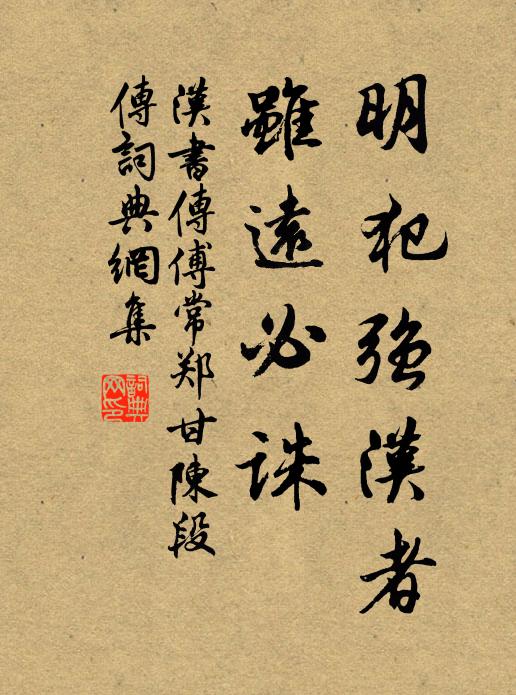 明犯強漢者
雖遠必誅
漢書傳傅常郑甘陳段
傳詞典網集
詞典
网印